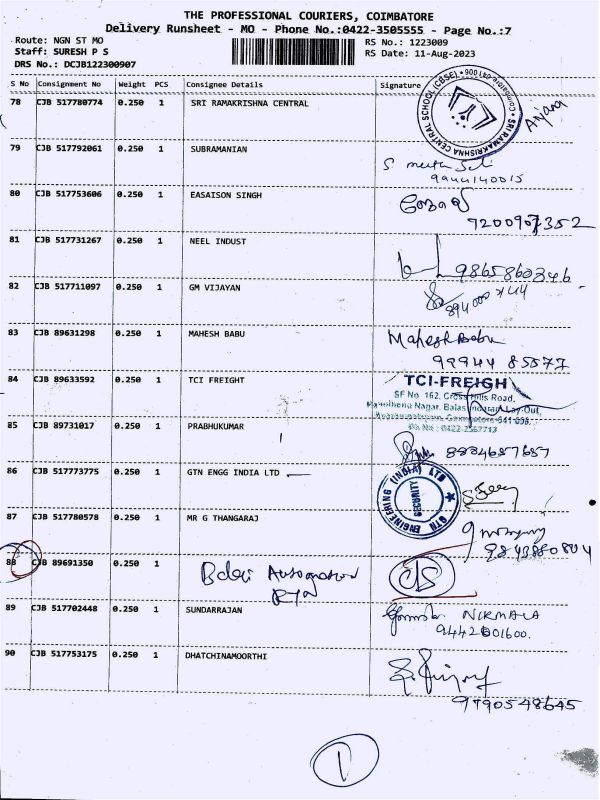 THE PROFESSIONAL COURIERS, COIMBATORE
Delivery Runsheet - MO - Phone No.:0422-3505555 - Page No.:7
Route: NGN ST MO
RS No.: 1223009
Staff: SURESH P S
RS Date: 11-Aug-2023
DRS No.: DCJB122300907
S No Consignment No Weight PCS Consignee Details Signature
78 CJB 517780774 0.250 1 SRI RAMAKRISHNA CENTRAL
SRI RAMAKRISHNA CENTRAL SCHOOL (CBSE)
Anjana
79 CJB 517792061 0.250 1 SUBRAMANIAN
9944140015
80 CJB 517753606 0.250 1 EASAISON SINGH
9200907352
81 CJB 517731267 0.250 1 NEEL INDUST
9865860346
82 CJB 517711097 0.250 1 GM VIJAYAN
83 CJB 89631298 0.250 1 MAHESH BABU
Mahesh Babu
99944 85577
84 CJB 89633592 0.250 1 TCI FREIGHT
TCI-FREIGH
SF No 162, Cross Hills Road,
85 CJB 89731017 0.250 1 PRABHUKUMAR
8884687657
86 CJB 517773775 0.250 1 GTN ENGG INDIA LTD
GTN ENGINEERING (INDIA) LTD
SECURITY
87 CJB 517780578 0.250 1 MR G THANGARAJ
9843880804
88 CJB 89691350 0.250 1
89 CJB 517702448 0.250 1 SUNDARRAJAN
NIRMALA
9442601600.
90 CJB 517753175 0.250 1 DHATCHINAMOORTHI
9790548645
1